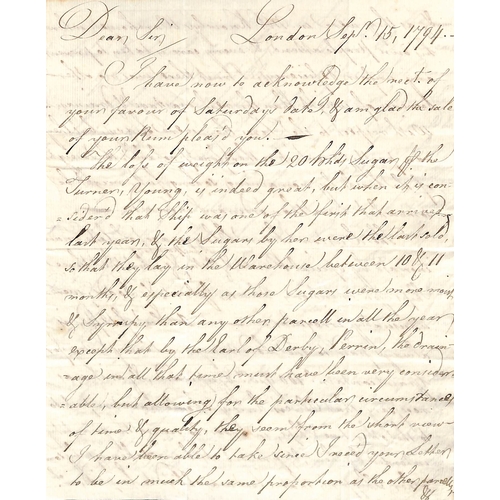 Dear Sir, London Sepr. 15, 1794.-
I have now to acknowledge the rect. of
your favour of Saturday's date, & am glad the sale
of your Rum pleas'd you. —
The loss of weight on the 20 hhds Sugar pr the
Turner, Young, is indeed great, but when it is con-
-siderd that Ship was one of the first that arrived
last year, & the Sugars by her were the last sold,
so that they lay in the Warehouse between 10 & 11
months, & especially as those Sugars were more moist
& Syrupy than any other parcell in all the year
except that by the Earl of Derby, Perrin, the drain-
-age in all that time must have been very consider-
-able, but allowing for the particular circumstances
of time & quality, they seem from the short view
I have been able to take since I reced your Letter
to be in much the same proportion as the other parcells